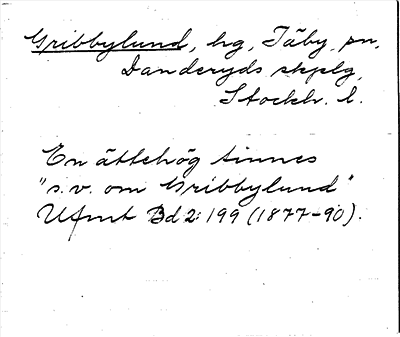 Gribbylund, hg, Täby sn,
Danderyds skplg,
Stockh. l.
En ättehög finnes
"s.v. om Gribbylund"
Ufmt Bd 2: 199 (1877-90).